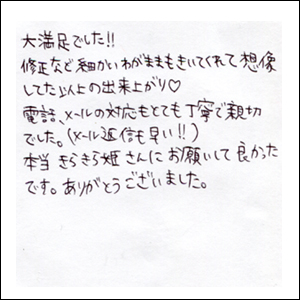 大満足でした!!
修正など細かいわがままもきいてくれて想像
してた以上の出来上がり♡
電話、メールの対応もとても丁寧で親切
でした。(メール返信も早い!!)
本当 きらきら姫さんにお願いして良かった
です。ありがとうございました。